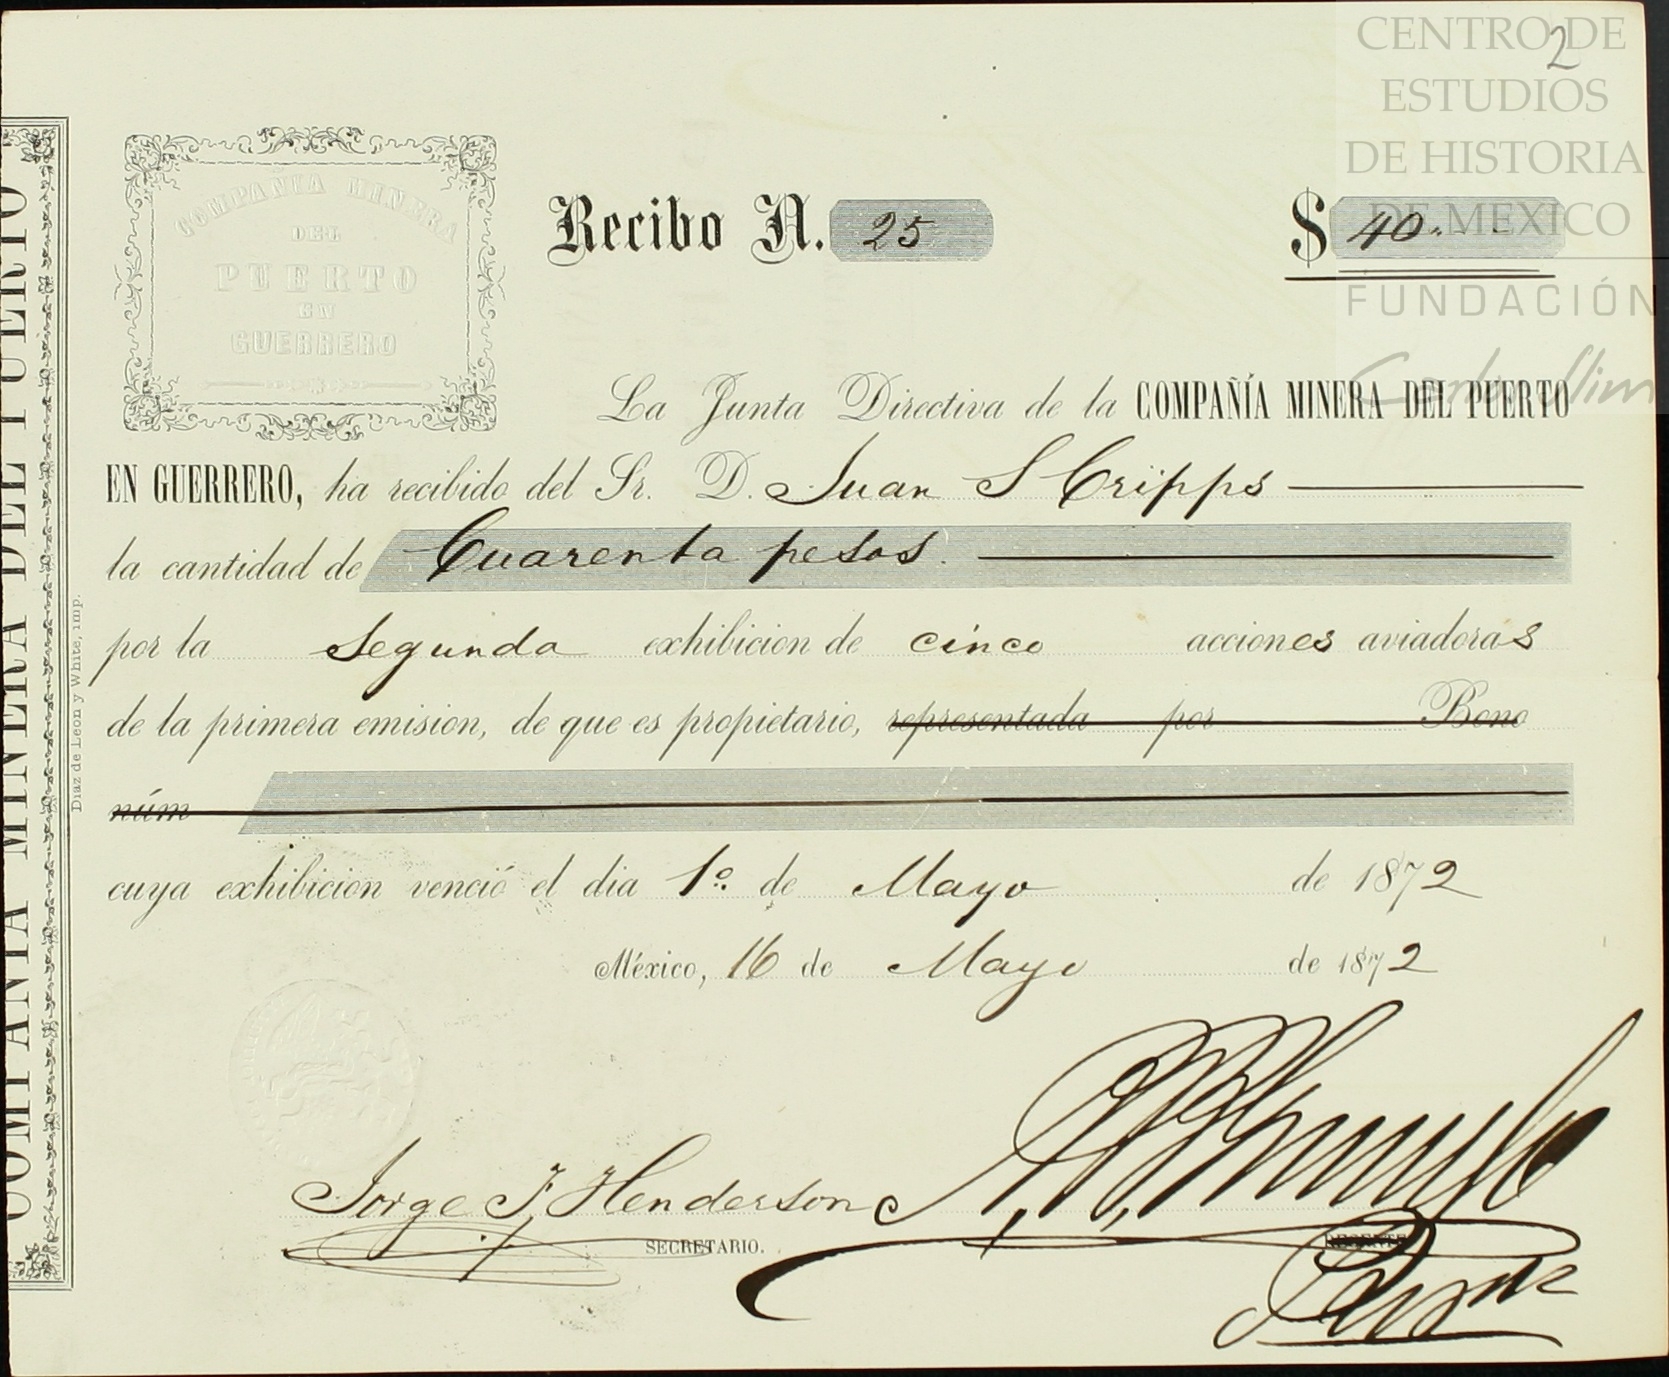 CENTRO DE
ESTUDIOS
DE HISTORIA
DE MEXICO
FUNDACIÓN
Carlos Slim
2
COMPAÑIA MINERA
DEL
PUERTO
EN
GUERRERO
Recibo N. 25
$ 40.
La Junta Directiva de la COMPAÑÍA MINERA DEL PUERTO
EN GUERRERO, ha recibido del Sr. D. Juan S Cripps
la cantidad de Cuarenta pesos.
por la segunda exhibicion de cinco acciones aviadoras
de la primera emision, de que es propietario, representada por Bono
núm
cuya exhibicion venció el dia 1º de Mayo de 1872
México, 16 de Mayo de 1872
Jorge F. Henderson
SECRETARIO.
COMPAÑIA MINERA DEL PUERTO
Diaz de Leon y White, imp.